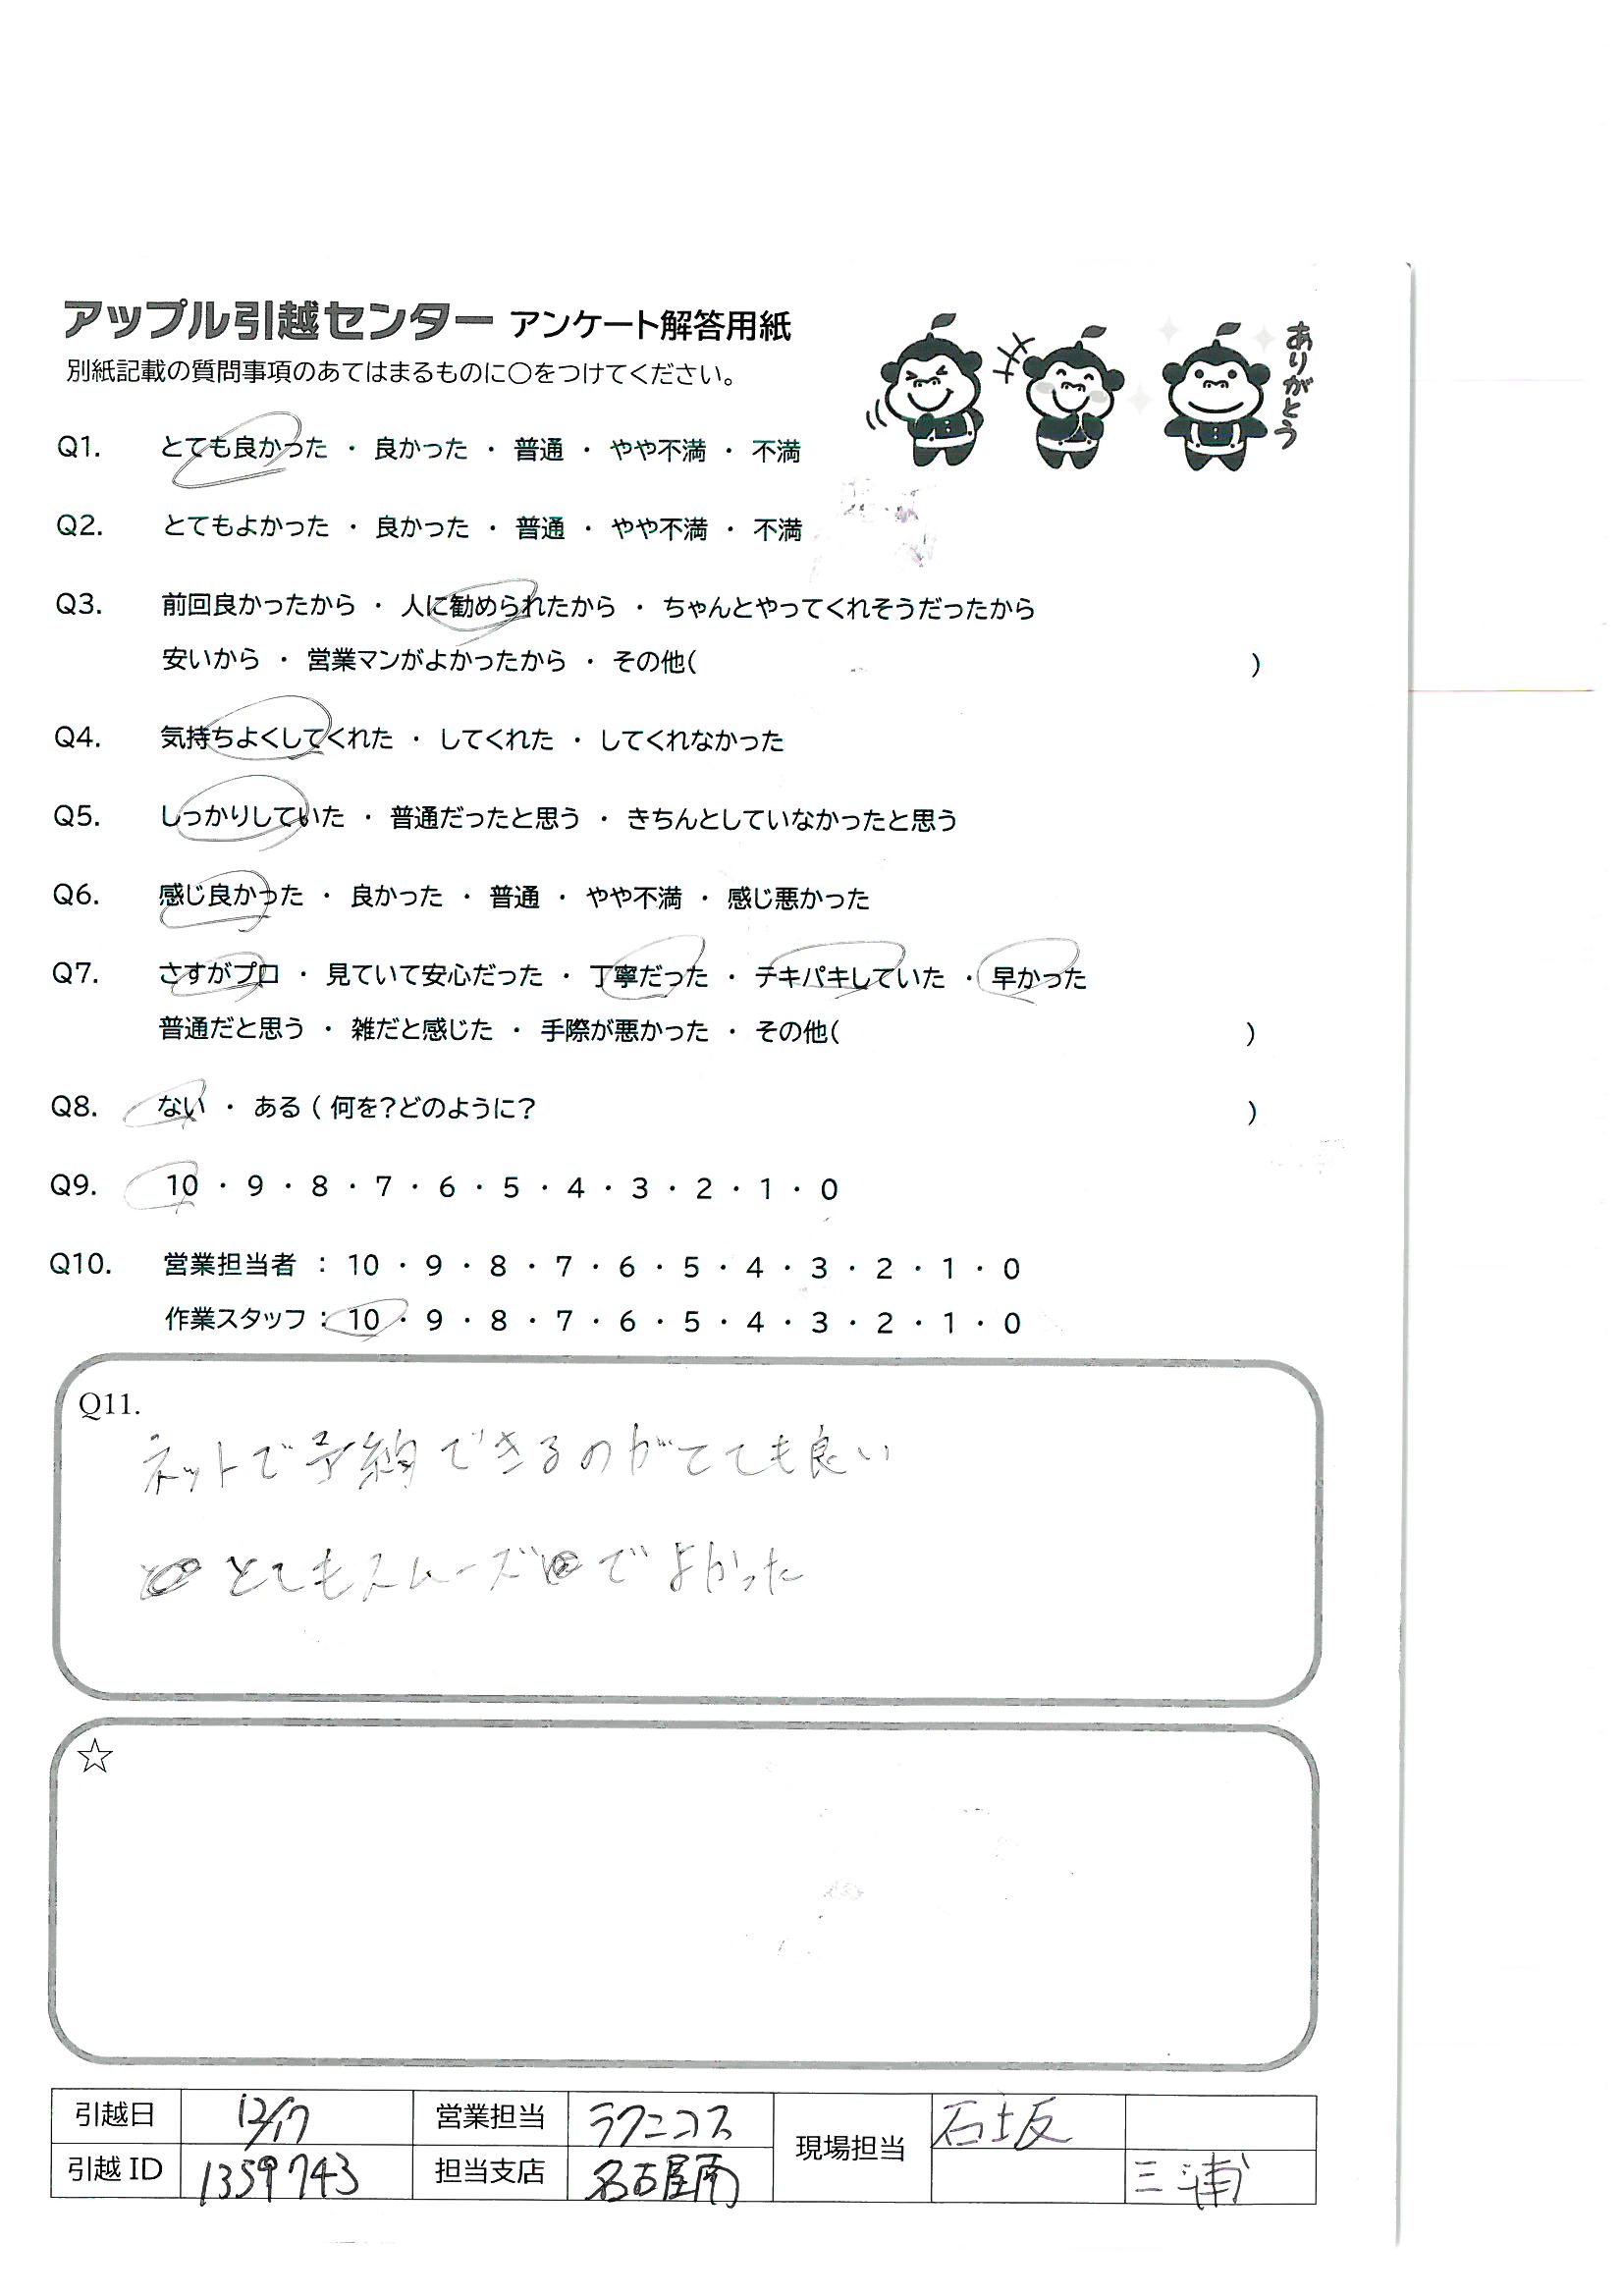 アップル引越センター アンケート解答用紙
別紙記載の質問事項のあてはまるものに○をつけてください。
ありがとう
Q1. とても良かった ・ 良かった ・ 普通 ・ やや不満 ・ 不満
Q2. とてもよかった ・ 良かった ・ 普通 ・ やや不満 ・ 不満
Q3. 前回良かったから ・ 人に勧められたから ・ ちゃんとやってくれそうだったから
安いから ・ 営業マンがよかったから ・ その他( )
Q4. 気持ちよくしてくれた ・ してくれた ・ してくれなかった
Q5. しっかりしていた ・ 普通だったと思う ・ きちんとしていなかったと思う
Q6. 感じ良かった ・ 良かった ・ 普通 ・ やや不満 ・ 感じ悪かった
Q7. さすがプロ ・ 見ていて安心だった ・ 丁寧だった ・ テキパキしていた ・ 早かった
普通だと思う ・ 雑だと感じた ・ 手際が悪かった ・ その他( )
Q8. ない ・ ある ( 何を?どのように? )
Q9. 10 ・ 9 ・ 8 ・ 7 ・ 6 ・ 5 ・ 4 ・ 3 ・ 2 ・ 1 ・ 0
Q10. 営業担当者 : 10 ・ 9 ・ 8 ・ 7 ・ 6 ・ 5 ・ 4 ・ 3 ・ 2 ・ 1 ・ 0
作業スタッフ : 10 ・ 9 ・ 8 ・ 7 ・ 6 ・ 5 ・ 4 ・ 3 ・ 2 ・ 1 ・ 0
Q11.
ネットで予約できるのがとても良い
とてもスムーズでよかった
☆
引越日 12/17 営業担当 ラクニコス 現場担当 石坂
引越 ID 1359743 担当支店 名古屋南 三浦